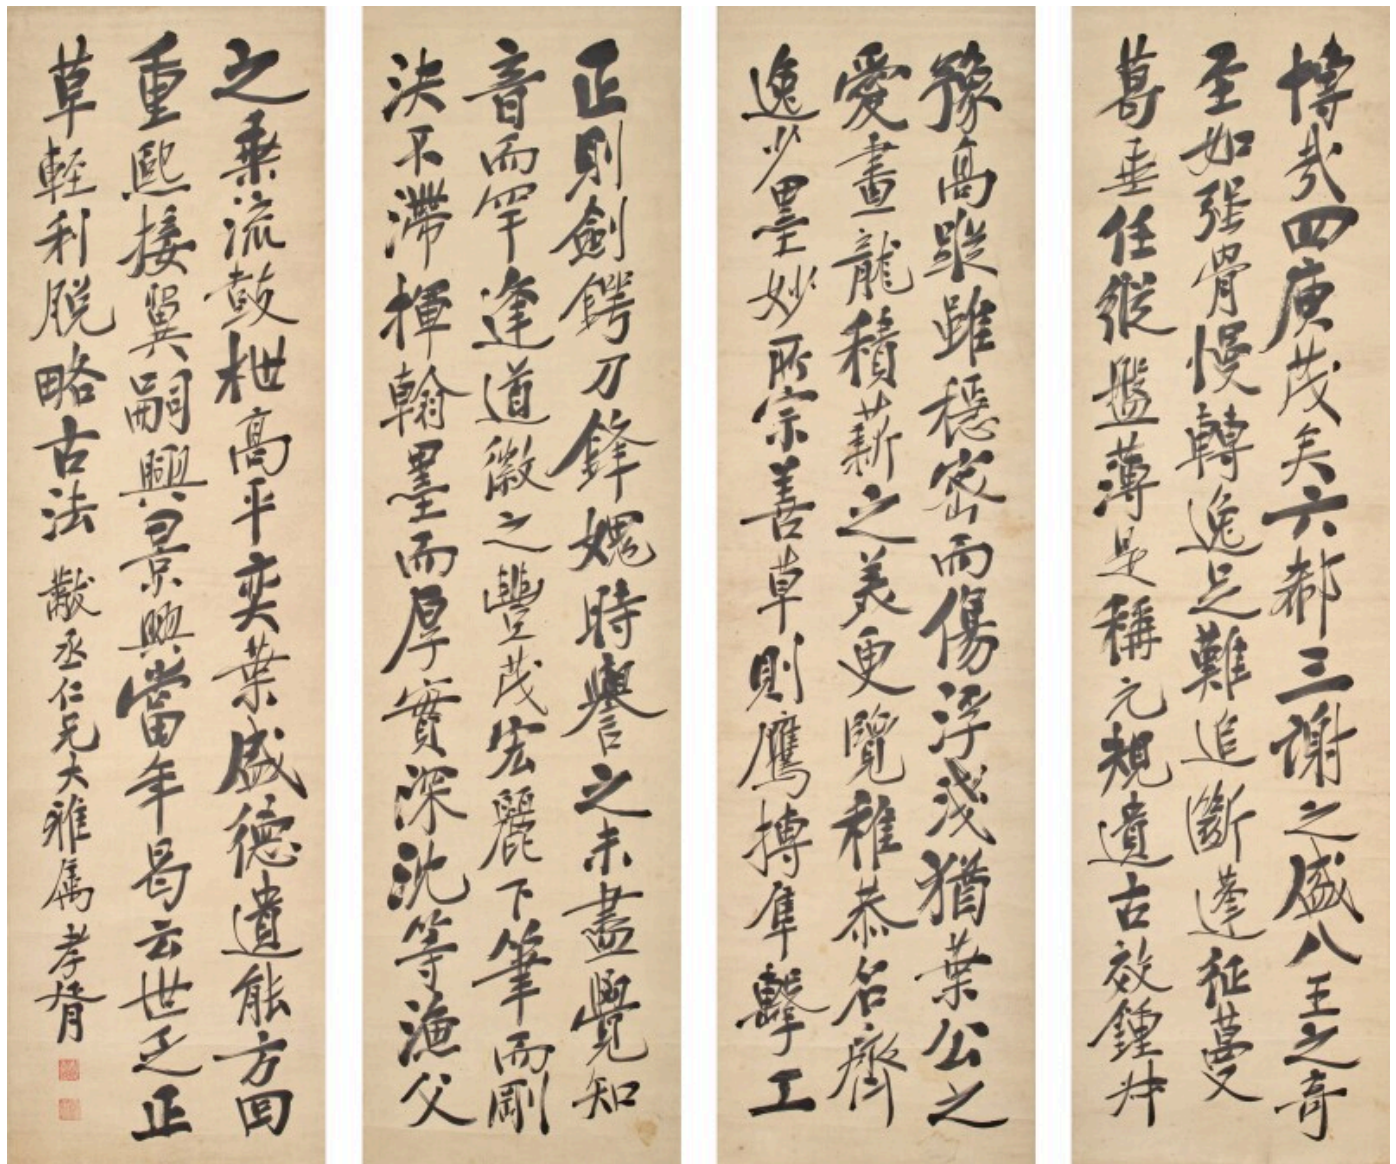 博哉四庾茂矣六郗三謝之盛八王之奇
至如强骨慢轉逸足難追斷蓬征蔓
葛垂任縱盤薄是稱元規遺古效鍾叶
豫高蹤雖穩密而傷浮淺猶葉公之
愛畫龍積薪之美更覽稚恭名齊
逸少墨妙所宗善草則鷹搏隼擊工
正則劍鍔刀鋒媿時譽之未盡覺知
音而罕逢道徽之豐茂宏麗下筆而剛
決不滯揮翰墨而厚實深沈等漁父
之乘流鼓枻高平奕葉盛德遺能方回
重熙接翼嗣興景興當年曷云世乏正
草輕利脫略古法 黻丞仁兄大雅属 孝胥